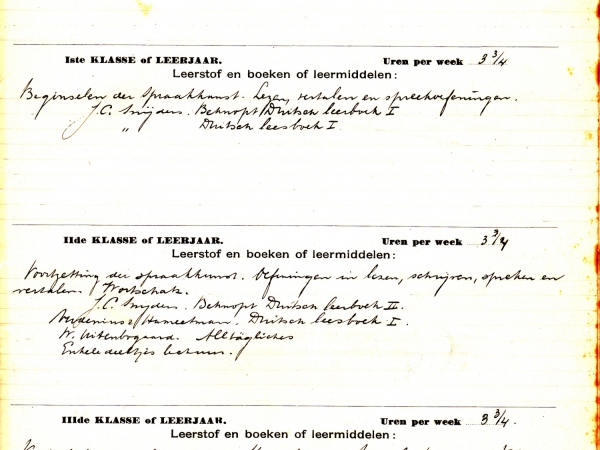 Iste KLASSE of LEERJAAR. Uren per week 3 3/4
Leerstof en boeken of leermiddelen:
Beginselen der Spraakkunst. Lezen, vertalen en spreekoefeningen.
J.C. Snijders. Beknopt Duitsch leerboek I
" Duitsch leesboek I
IIde KLASSE of LEERJAAR. Uren per week 3 3/4
Leerstof en boeken of leermiddelen:
Voortzetting der spraakkunst. Oefeningen in lezen, schrijven, spreken en
vertalen. Wortschatz.
J.C. Snijders. Beknopt Duitsch leerboek II
Duitsch leesboek I.
W. Uitenbogaard. Alltägliches
Enkele deeltjes lectuur.
IIIde KLASSE of LEERJAAR. Uren per week 3 3/4.
Leerstof en boeken of leermiddelen: